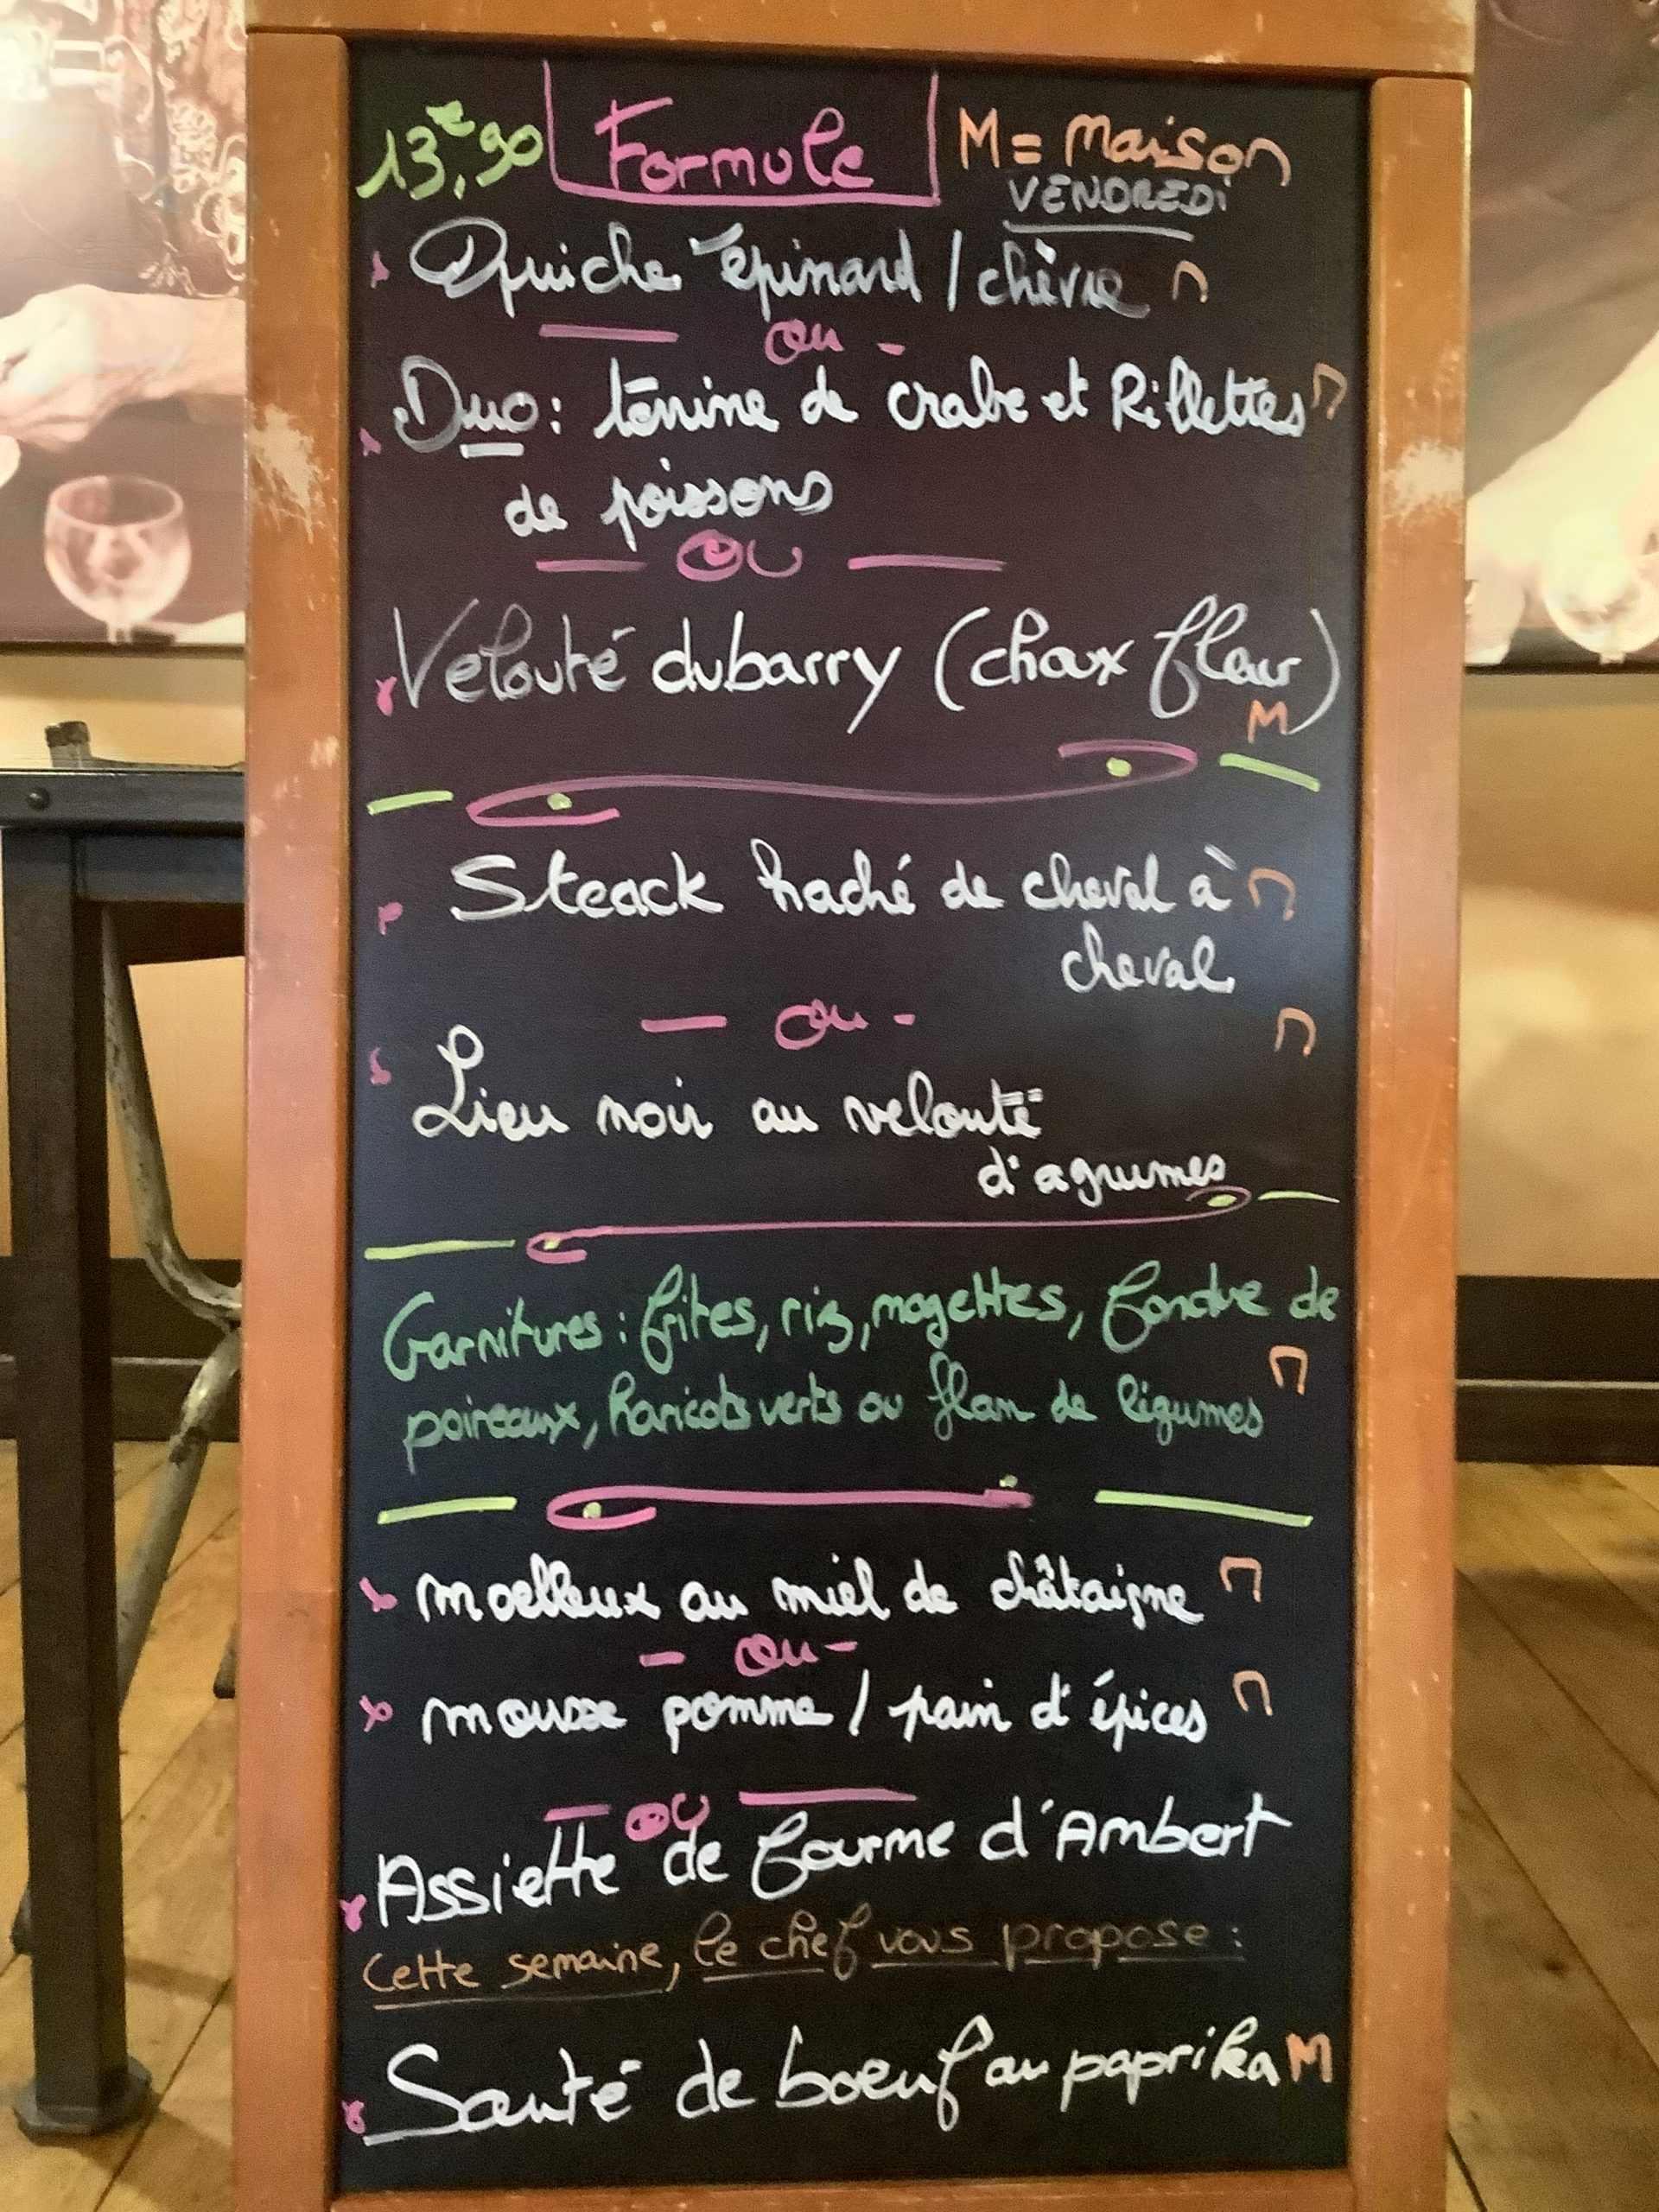 13,€90 Formule M = Maison
VENDREDI
Quiche épinard / chèvre M
ou -
Duo : terrine de crabe et Rillettes M
de poissons
OU
Velouté dubarry (choux fleur)
M
Steack haché de cheval à M
cheval
ou - M
Lieu noir au velouté
d'agrumes
Garnitures : frites, riz, mogettes, fondue de
poireaux, haricots verts ou flan de légumes M
moelleux au miel de châtaigne M
- ou -
mousse pomme / pain d'épices M
OU
Assiette de fourme d'Ambert
Cette semaine, le chef vous propose :
Sauté de boeuf au paprika M